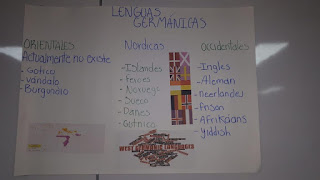 LENGUAS
GERMÁNICAS
ORIENTALES
Actualmente no existe
- Gotico
- vandalo
- Burgundio
Nordicas
- Islandes
- Feroes
- Noruego
- Sueco
- Danes
- Gotnico
Occidentales
- Ingles
- Aleman
- neerlandes
- Frison
- Afrikáans
- yiddish
WEST GERMANIC LANGUAGES